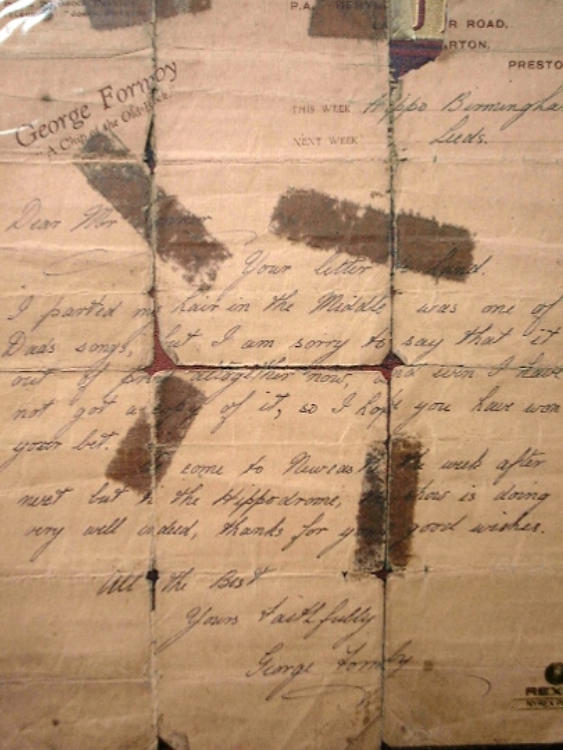 P.A.
R ROAD,
ARTON,
PRESTO
George Formby
"A Chip of the Old Block"
THIS WEEK Hippo Birmingha
NEXT WEEK Leeds.
Dear Mr
Your letter to hand.
I parted my hair in the Middle was one of
Dads songs, but I am sorry to say that it
out of altogether now, and even I have
not got a copy of it, so I hope you have won
your bet.
come to Newcastle the week after
next but to the Hippodrome, the show is doing
very well indeed, thanks for your good wishes.
All the Best
Yours faithfully
George Formby
REX